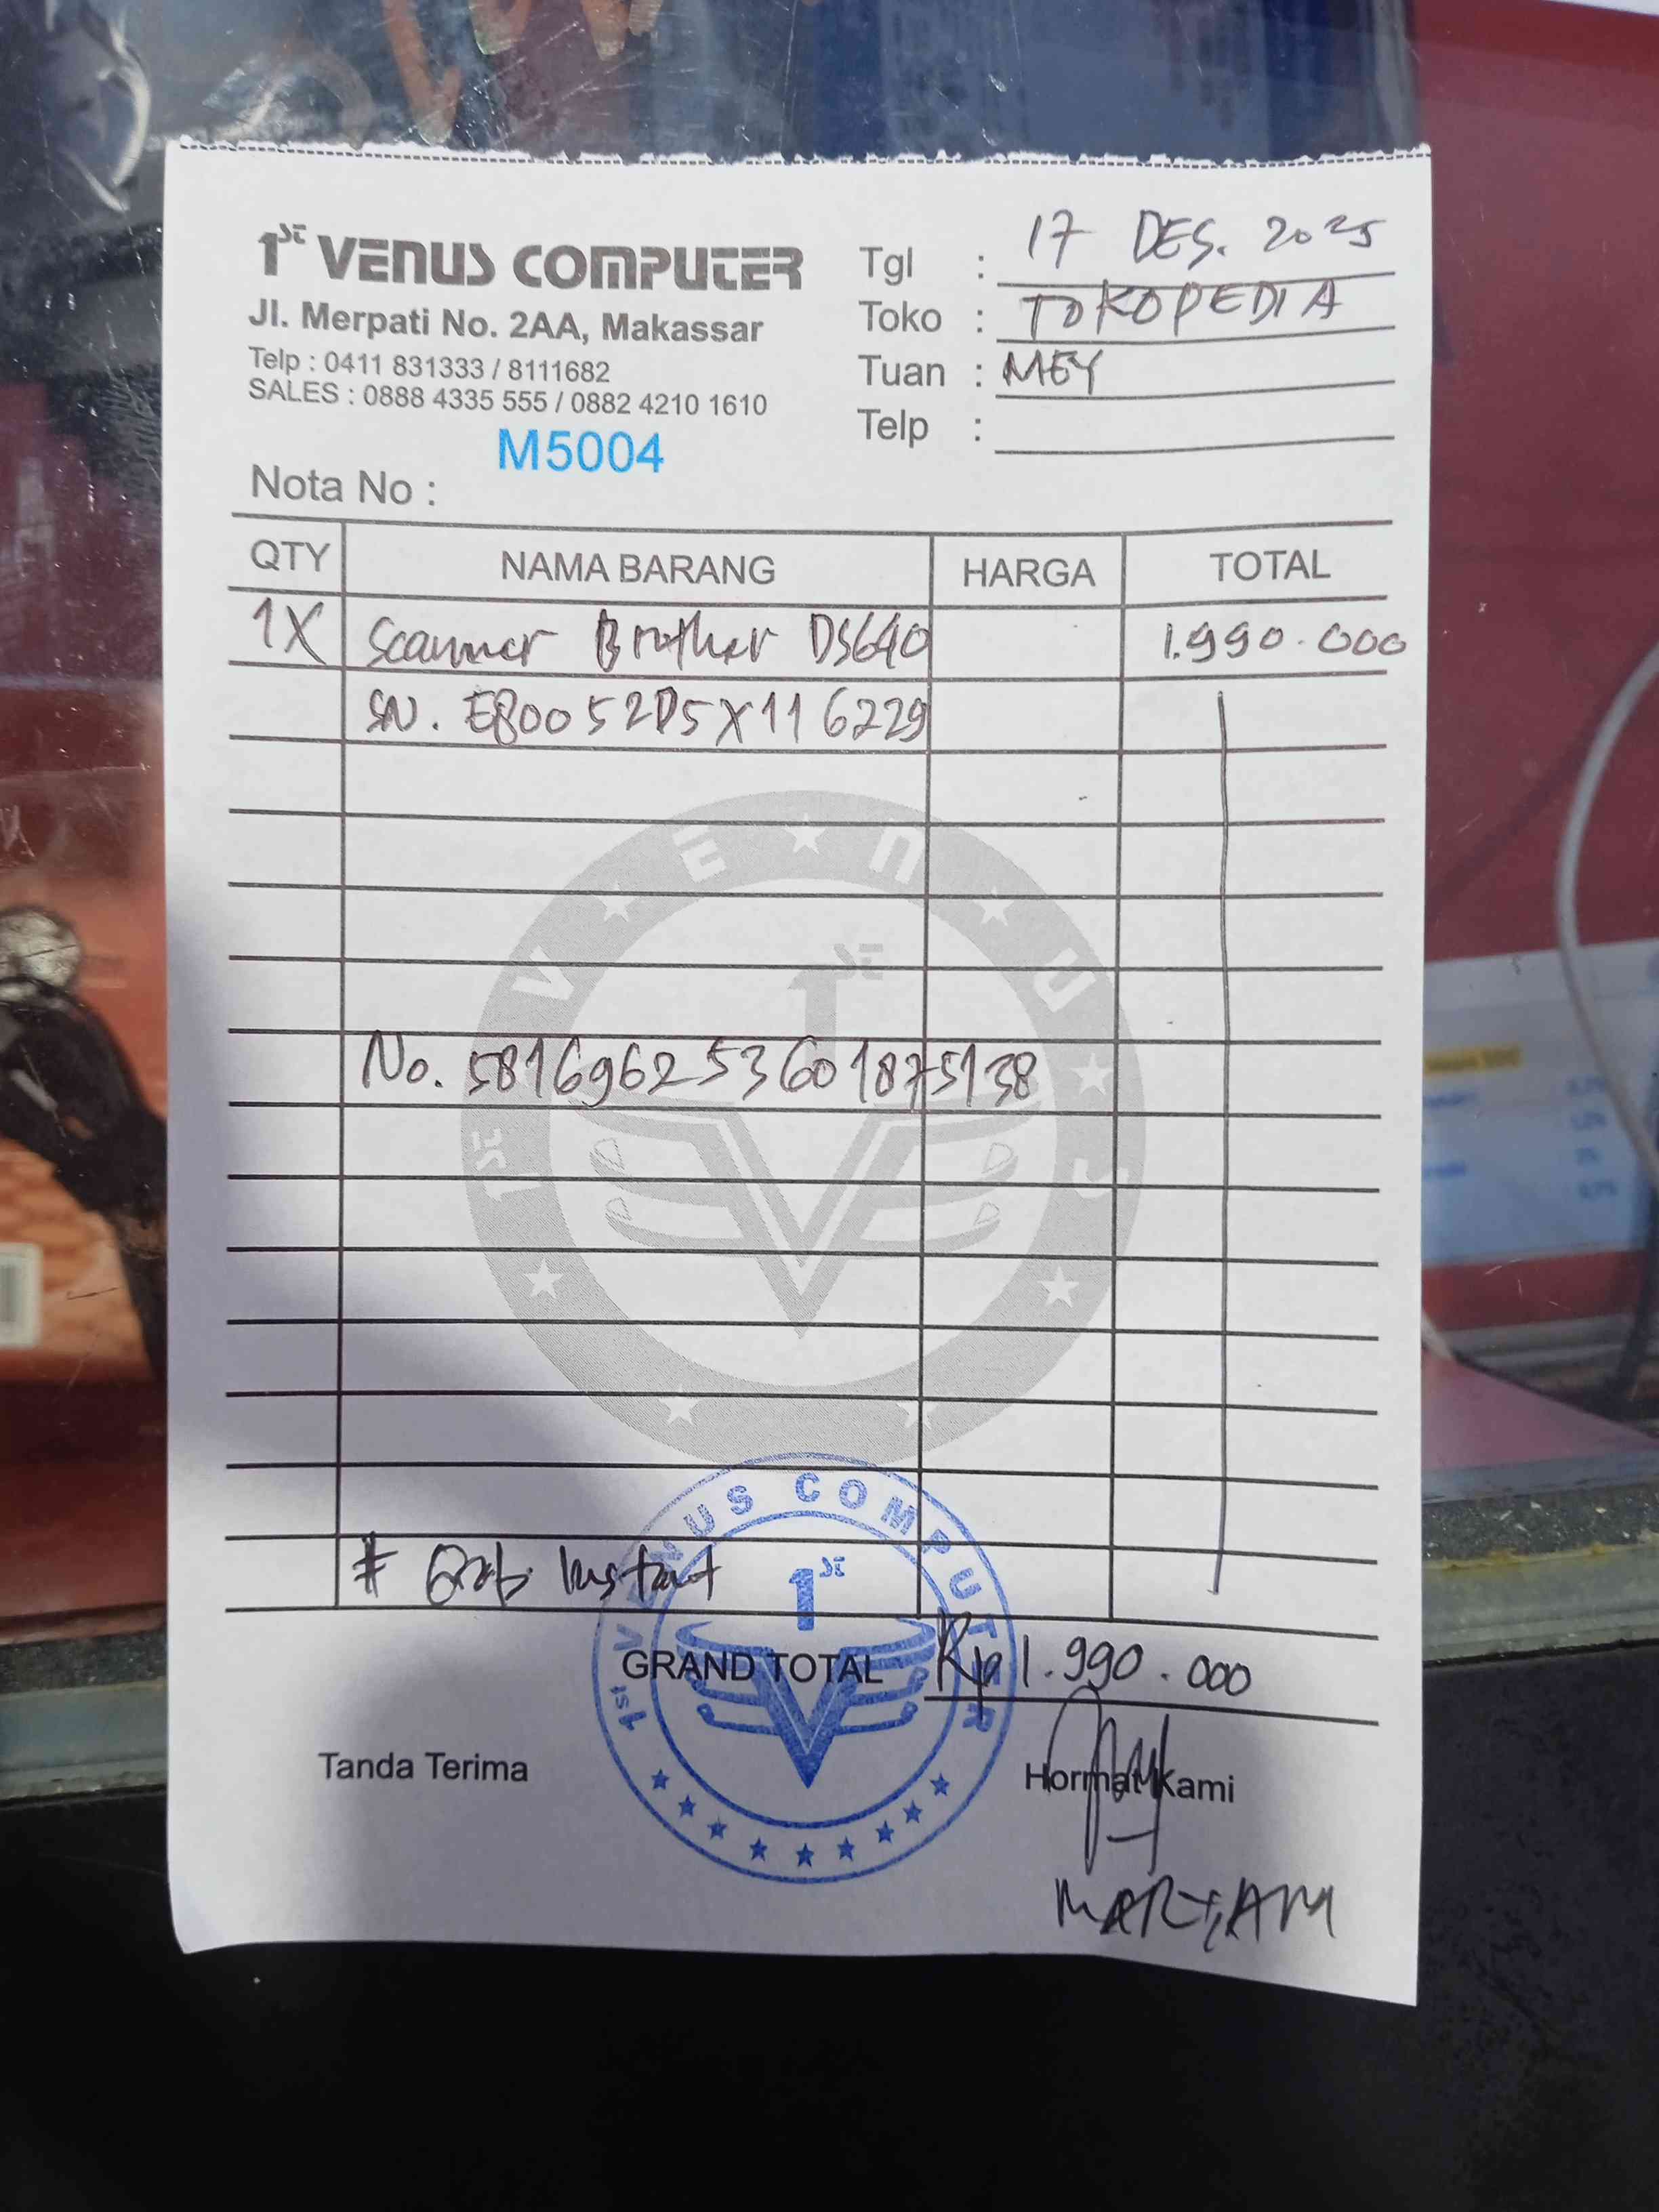 1st VENUS COMPUTER
Jl. Merpati No. 2AA, Makassar
Telp : 0411 831333 / 8111682
SALES : 0888 4335 555 / 0882 4210 1610
M5004
Nota No :
Tgl : 17 DES. 2025
Toko : TOKOPEDIA
Tuan : MEY
Telp :
QTY NAMA BARANG HARGA TOTAL
1X Scanner Brother DS640 1.990.000
SN. E80052D5X116229
1st VENUS
1st
No. 581696253601875138
# Grab Instant
GRAND TOTAL Rp 1.990.000
1st VENUS COMPUTER
1st
Tanda Terima
Hormat Kami
MARIAM